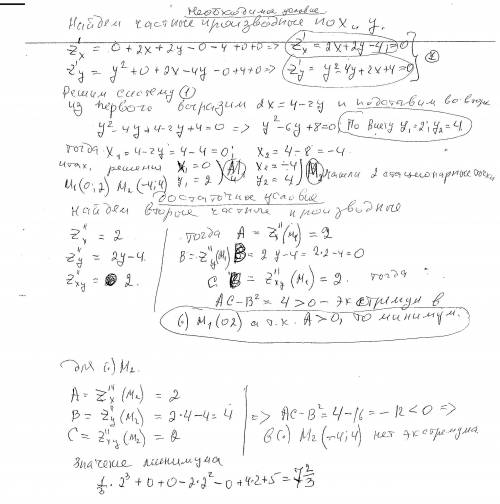 необходимое условие
Найдем частные производные по x и y.
z'x = 0+2x+2y-0-4+0+0 => z'x = 2x+2y-4=0
z'y = y²+0+2x-4y-0+4+0 => z'y = y²-4y+2x+4=0 } ①
Решим систему ①
из первого выразим 2x=4-2y и подставим во второе
y²-4y+4-2y+4=0 => y²-6y+8=0 По Виету y₁=2; y₂=4
тогда x₁=4-2y=4-4=0; x₂=4-8=-4.
итак, решения x₁=0 y₁=2 } M₁ x₂=-4 y₂=4 } M₂ нашли 2 стационарные точки
M₁(0;2) M₂(-4;4)
достаточное условие
найдем вторые частные производные
z''x = 2
z''y = 2y-4.
z''xy = 2.
тогда A = z''x(M₁) = 2
B = z''y(M₁) = 2y-4=2·2-4=0
C = z''xy(M₁) = 2. тогда
AC-B²=4>0 - экстремум в
(·) M₁(02) а т.к. A>0, то минимум.
для (·) M₂.
A = z''x(M₂) = 2
B = z''y(M₂) = 2·4-4=4
C = z''xy(M₂) = 2
=> AC-B²=4-16=-12<0 =>
в (·) M₂(-4;4) нет экстремума
Значение минимума
1/3·2³+0+0-2·2²-0+4·2+5=7 2/3